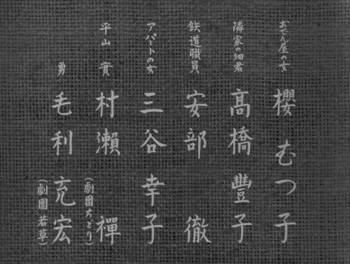 おでん屋の女 櫻むつ子
隣家の細君 高橋豐子
鉄道職員 安部徹
アパートの女 三谷幸子
平山實 村瀬禪
(劇團ちどり)
勇 毛利充宏
(劇團若草)